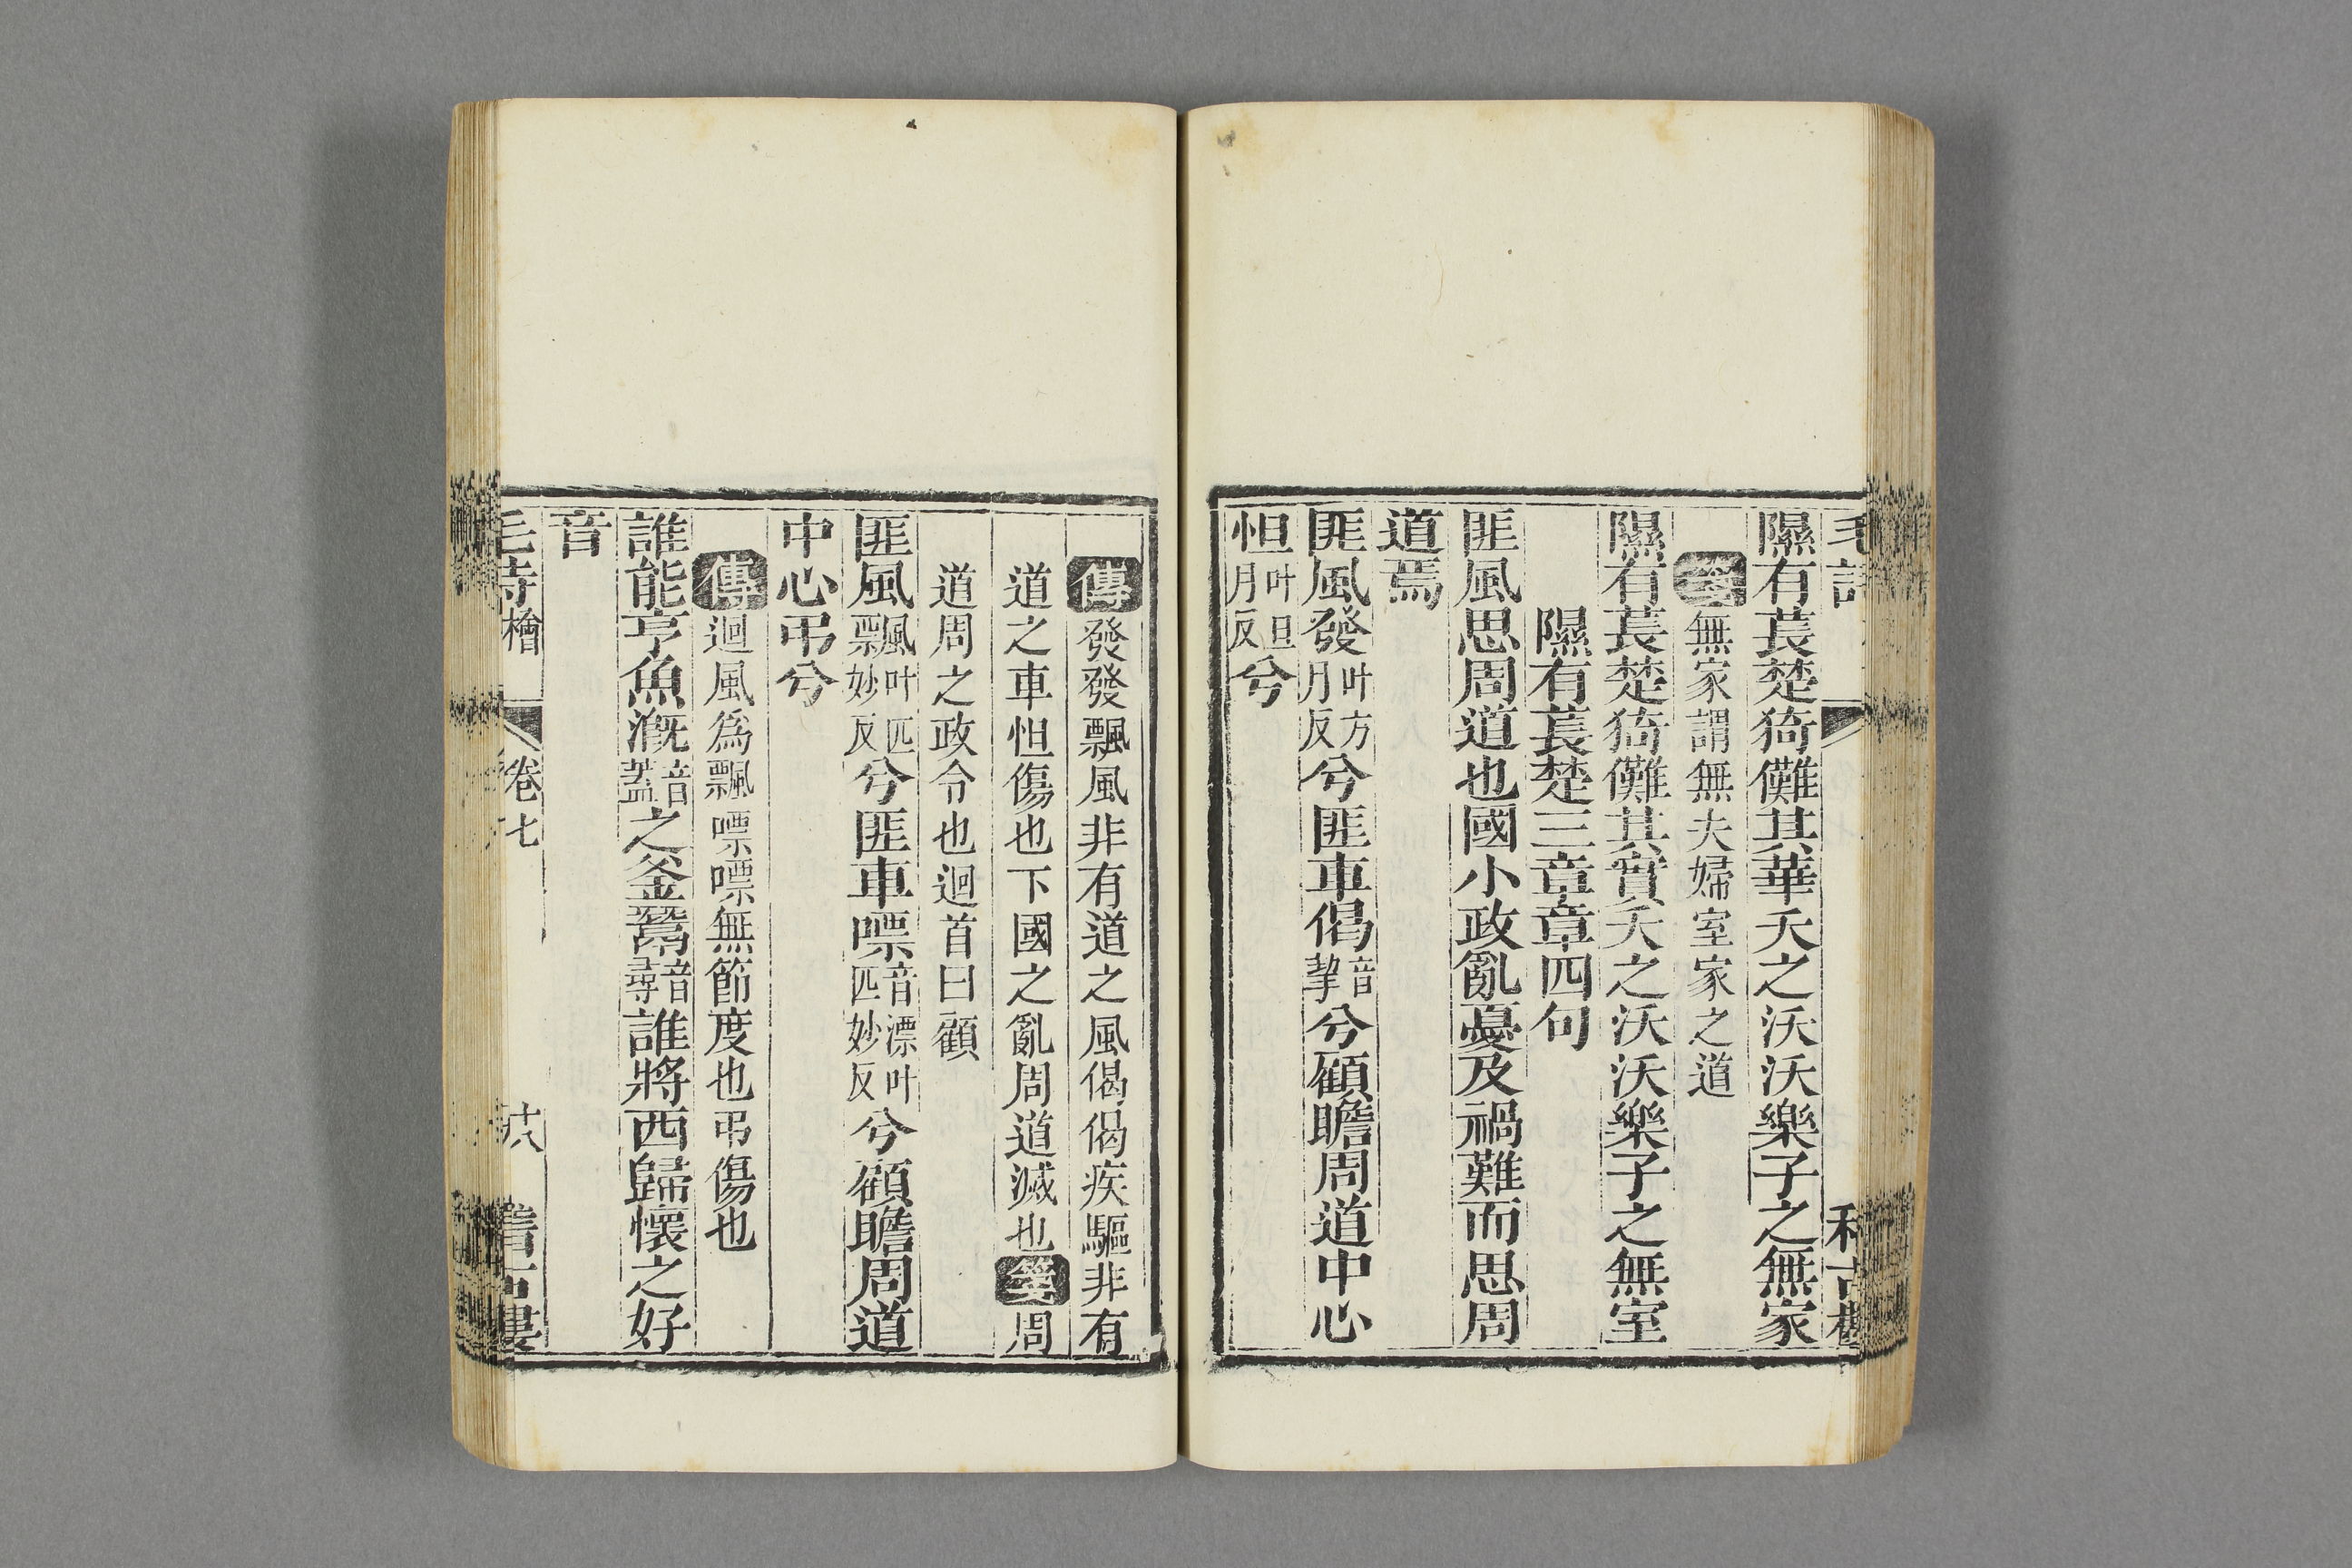 隰有萇楚猗儺其華夭之沃沃樂子之無家
箋無家謂無夫婦室家之道
隰有萇楚猗儺其實夭之沃沃樂子之無室
隰有萇楚三章章四句
匪風思周道也國小政亂憂及禍難而思周
道焉
匪風發叶方月反兮匪車偈音挈兮顧瞻周道中心
怛叶旦月反兮
傳發發飄風非有道之風偈偈疾驅非有
道之車怛傷也下國之亂周道滅也箋周
道周之政令也迴首曰顧
匪風飄叶匹妙反兮匪車嘌音漂叶匹妙反兮顧瞻周道
中心弔兮
傳迴風爲飄嘌嘌無節度也弔傷也
誰能亨魚漑音蓋之釜鬵音尋誰將西歸懷之好
音
檜 卷七